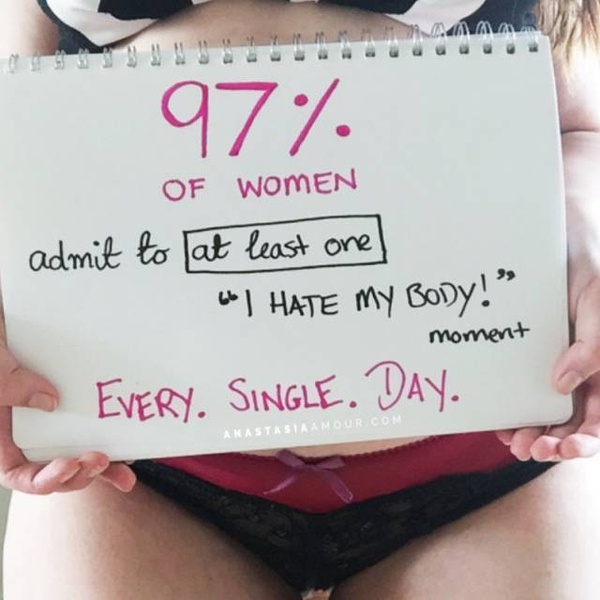 97%.
OF WOMEN
admit to at least one
"I HATE MY BODY!"
moment
EVERY. SINGLE. DAY.
ANASTASIAAMOUR.COM